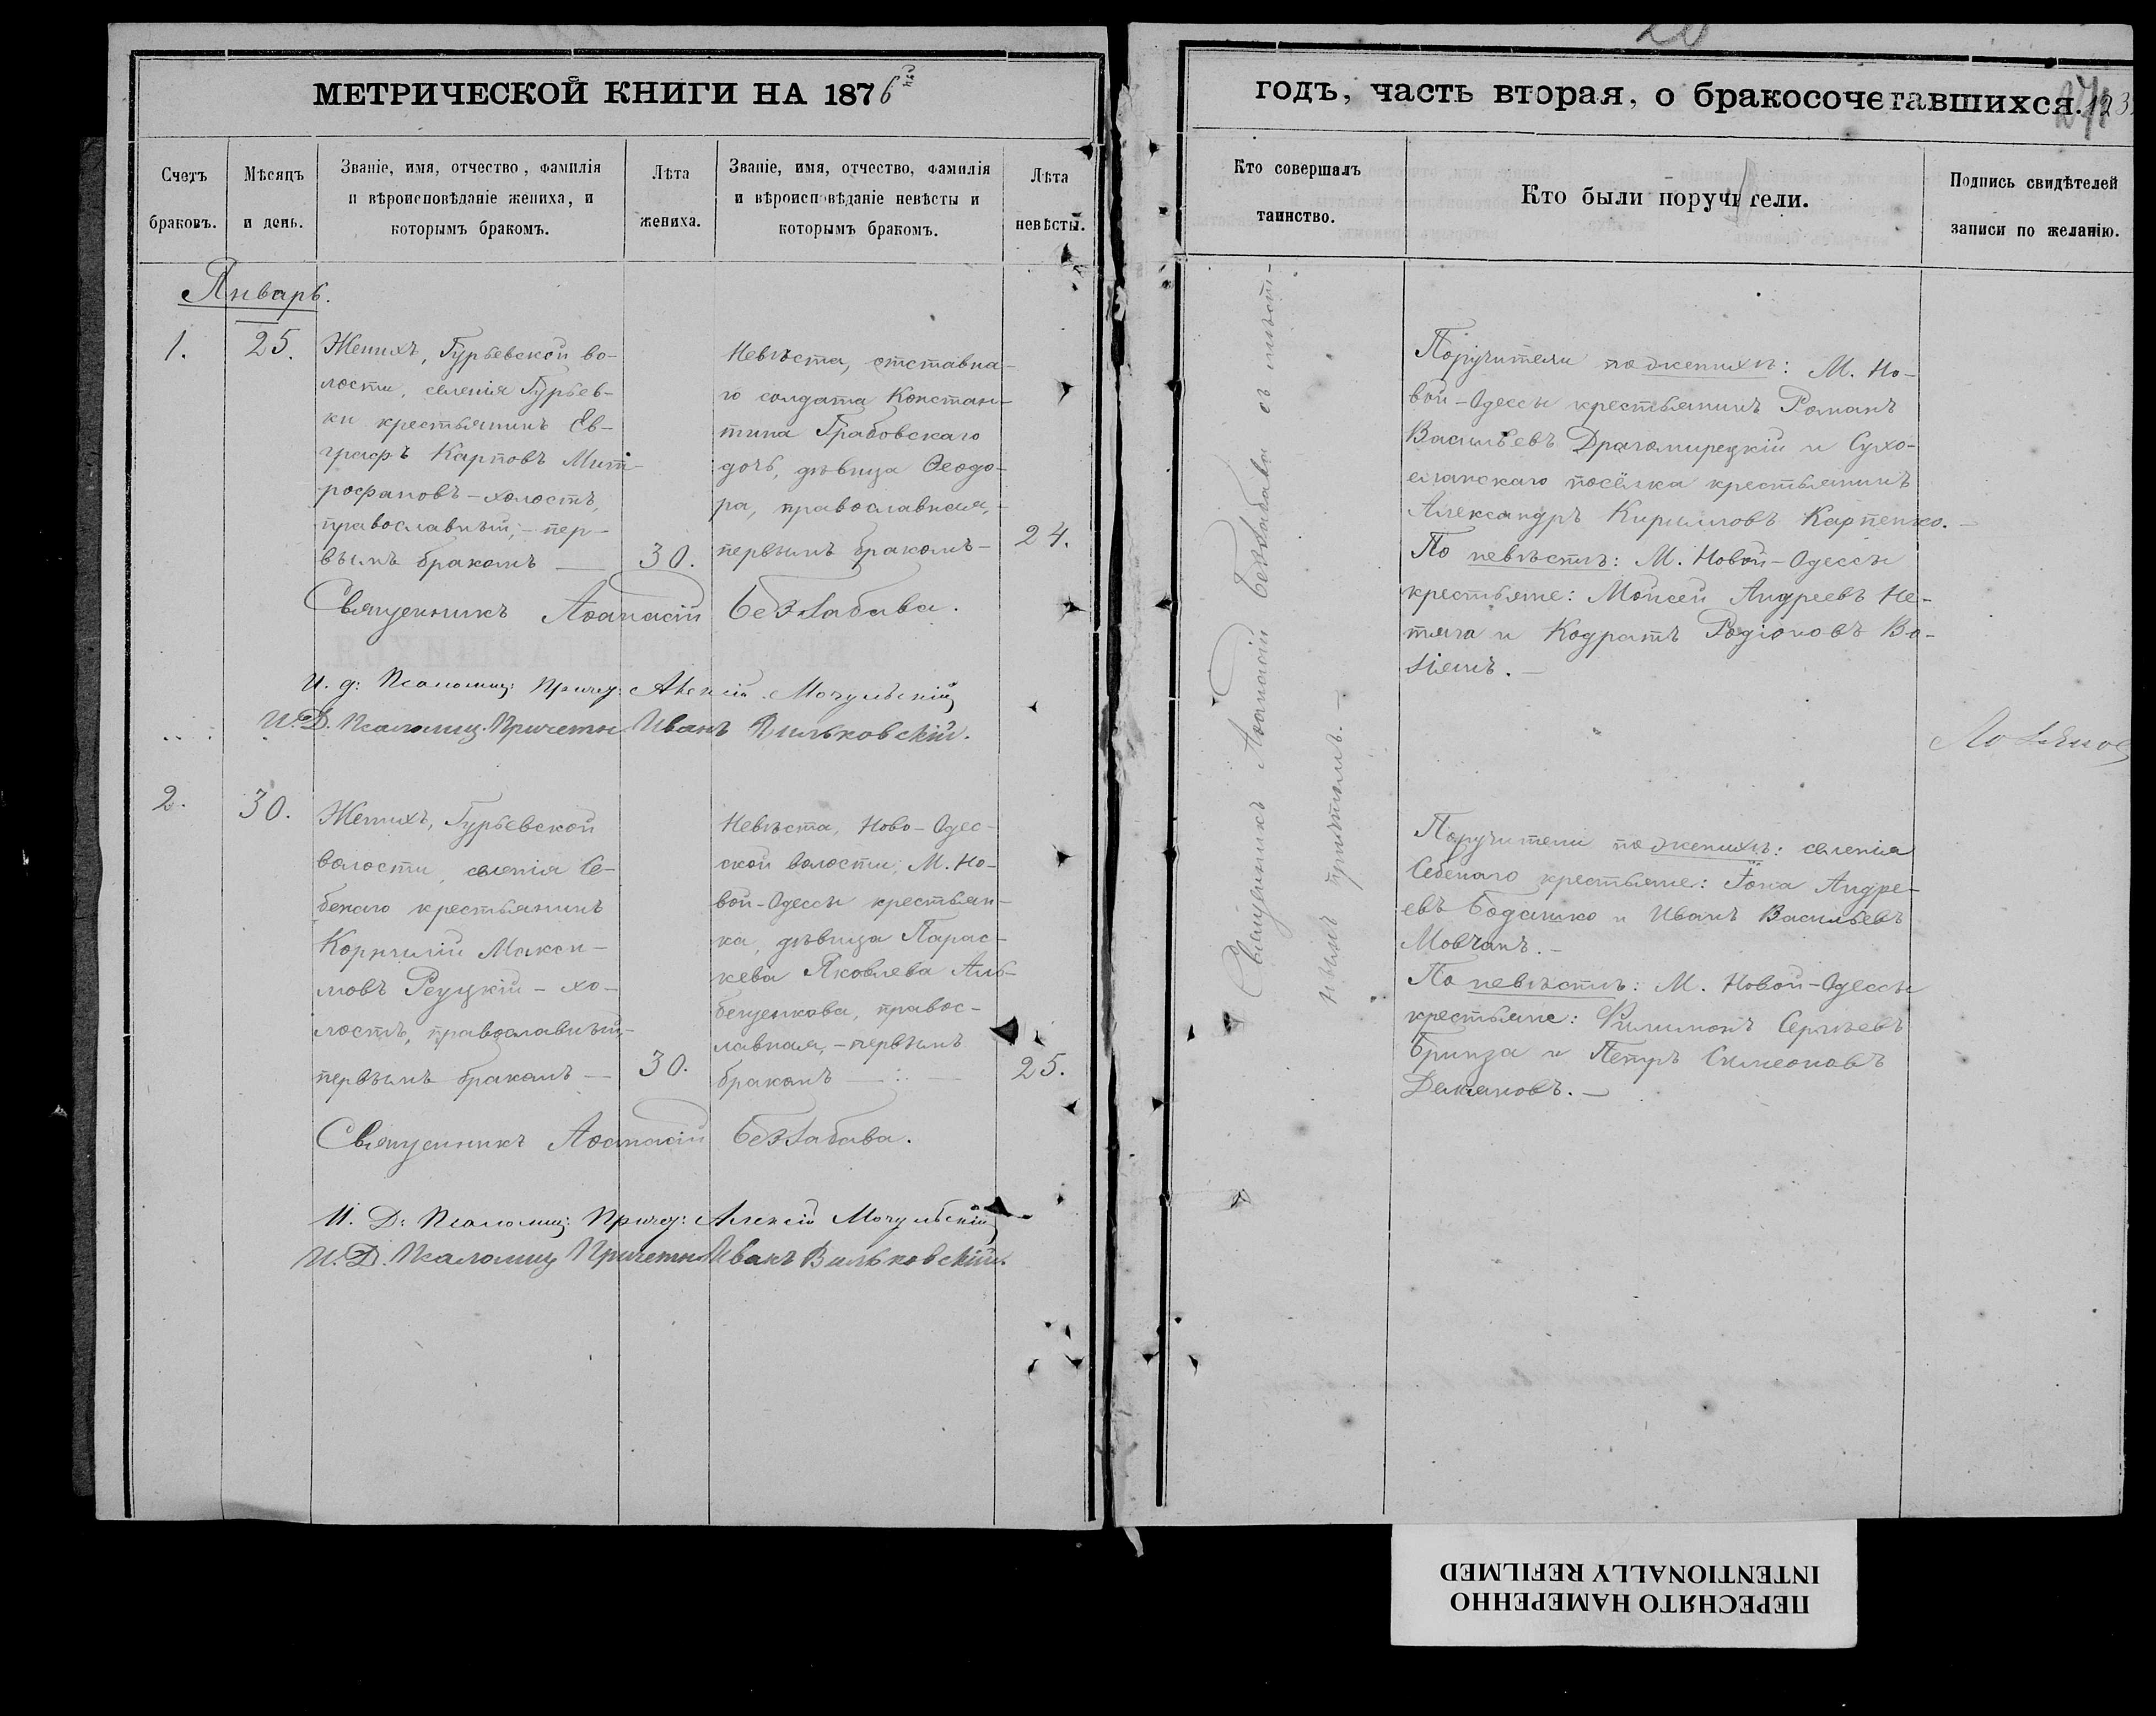 МЕТРИЧЕСКОЙ КНИГИ НА 1876
Счетъ браковъ.
Мѣсяцъ и день.
Званіе, имя, отчество, фамилія
и вѣроисповѣданіе жениха, и
которымъ бракомъ.
Лѣта
жениха.
Званіе, имя, отчество, фамилія
и вѣроисповѣданіе невѣсты и
которымъ бракомъ.
Лѣта
невѣсты.
Январь.
1.
25.
Женихъ, Гурьевской во-
лости, селенія Гурьев-
ки крестьянинъ Ев-
графъ Карповъ Мит-
рофановъ - холостъ,
православный, - пер-
вымъ бракомъ —
30.
Невѣста, отставна-
го солдата Констан-
тина Грабовскаго
дочь, дѣвица Ѳеодо-
ра, православная, -
первымъ бракомъ -
24.
Священникъ Аѳанасій Беззабава.
И. д: Псаломщ: Причет: Алексій Мочульскій
И. Д. Псаломщ. Причетн Иванъ Вильковскій.
2.
30.
Женихъ, Гурьевской
волости, селенія Се-
бенаго крестьянинъ
Корнилій Макси-
мовъ Реуцкій - хо-
лостъ, православный, -
первымъ бракомъ —
30.
Невѣста, Ново-Одес-
ской волости, М. Но-
вой-Одессы крестьян-
ка, дѣвица Парас-
кева Яковлева Аль-
бещенкова, правос-
лавная, - первымъ
бракомъ —
25.
Священникъ Аѳанасій Беззабава.
И. Д: Псаломщ: Причет: Алексій Мочульскій
И. Д. Псаломщ Причетн Иванъ Вильковскій.
20
годъ, часть вторая, о бракосочетавшихся.
123.
Кто совершалъ
таинство.
Кто были поручители.
Подпись свидѣтелей
записи по желанію.
Священникъ Аѳанасій Беззабава съ мѣст-
нымъ причтомъ. —
Поручители по женихѣ: М. Но-
вой-Одессы крестьянинъ Романъ
Васильевъ Драгомирецкій и Сухо-
еланскаго посёлка крестьянинъ
Александръ Кирилловъ Карпенко. -
По невѣстѣ: М. Новой-Одессы
крестьяне: Мойсей Андреевъ Не-
тяга и Кодратъ Родіоновъ Во-
зіянъ. —
Поручители по женихѣ: селенія
Себенаго крестьяне: Іона Андре-
евъ Бодашко и Иванъ Васильевъ
Мовчанъ. -
По невѣстѣ: М. Новой-Одессы
крестьяне: Филимонъ Сергѣевъ
Бринза и Петръ Симеоновъ
Демяновъ. —
ПЕРЕСНЯТО НАМЕРЕННО
INTENTIONALLY REFILMED